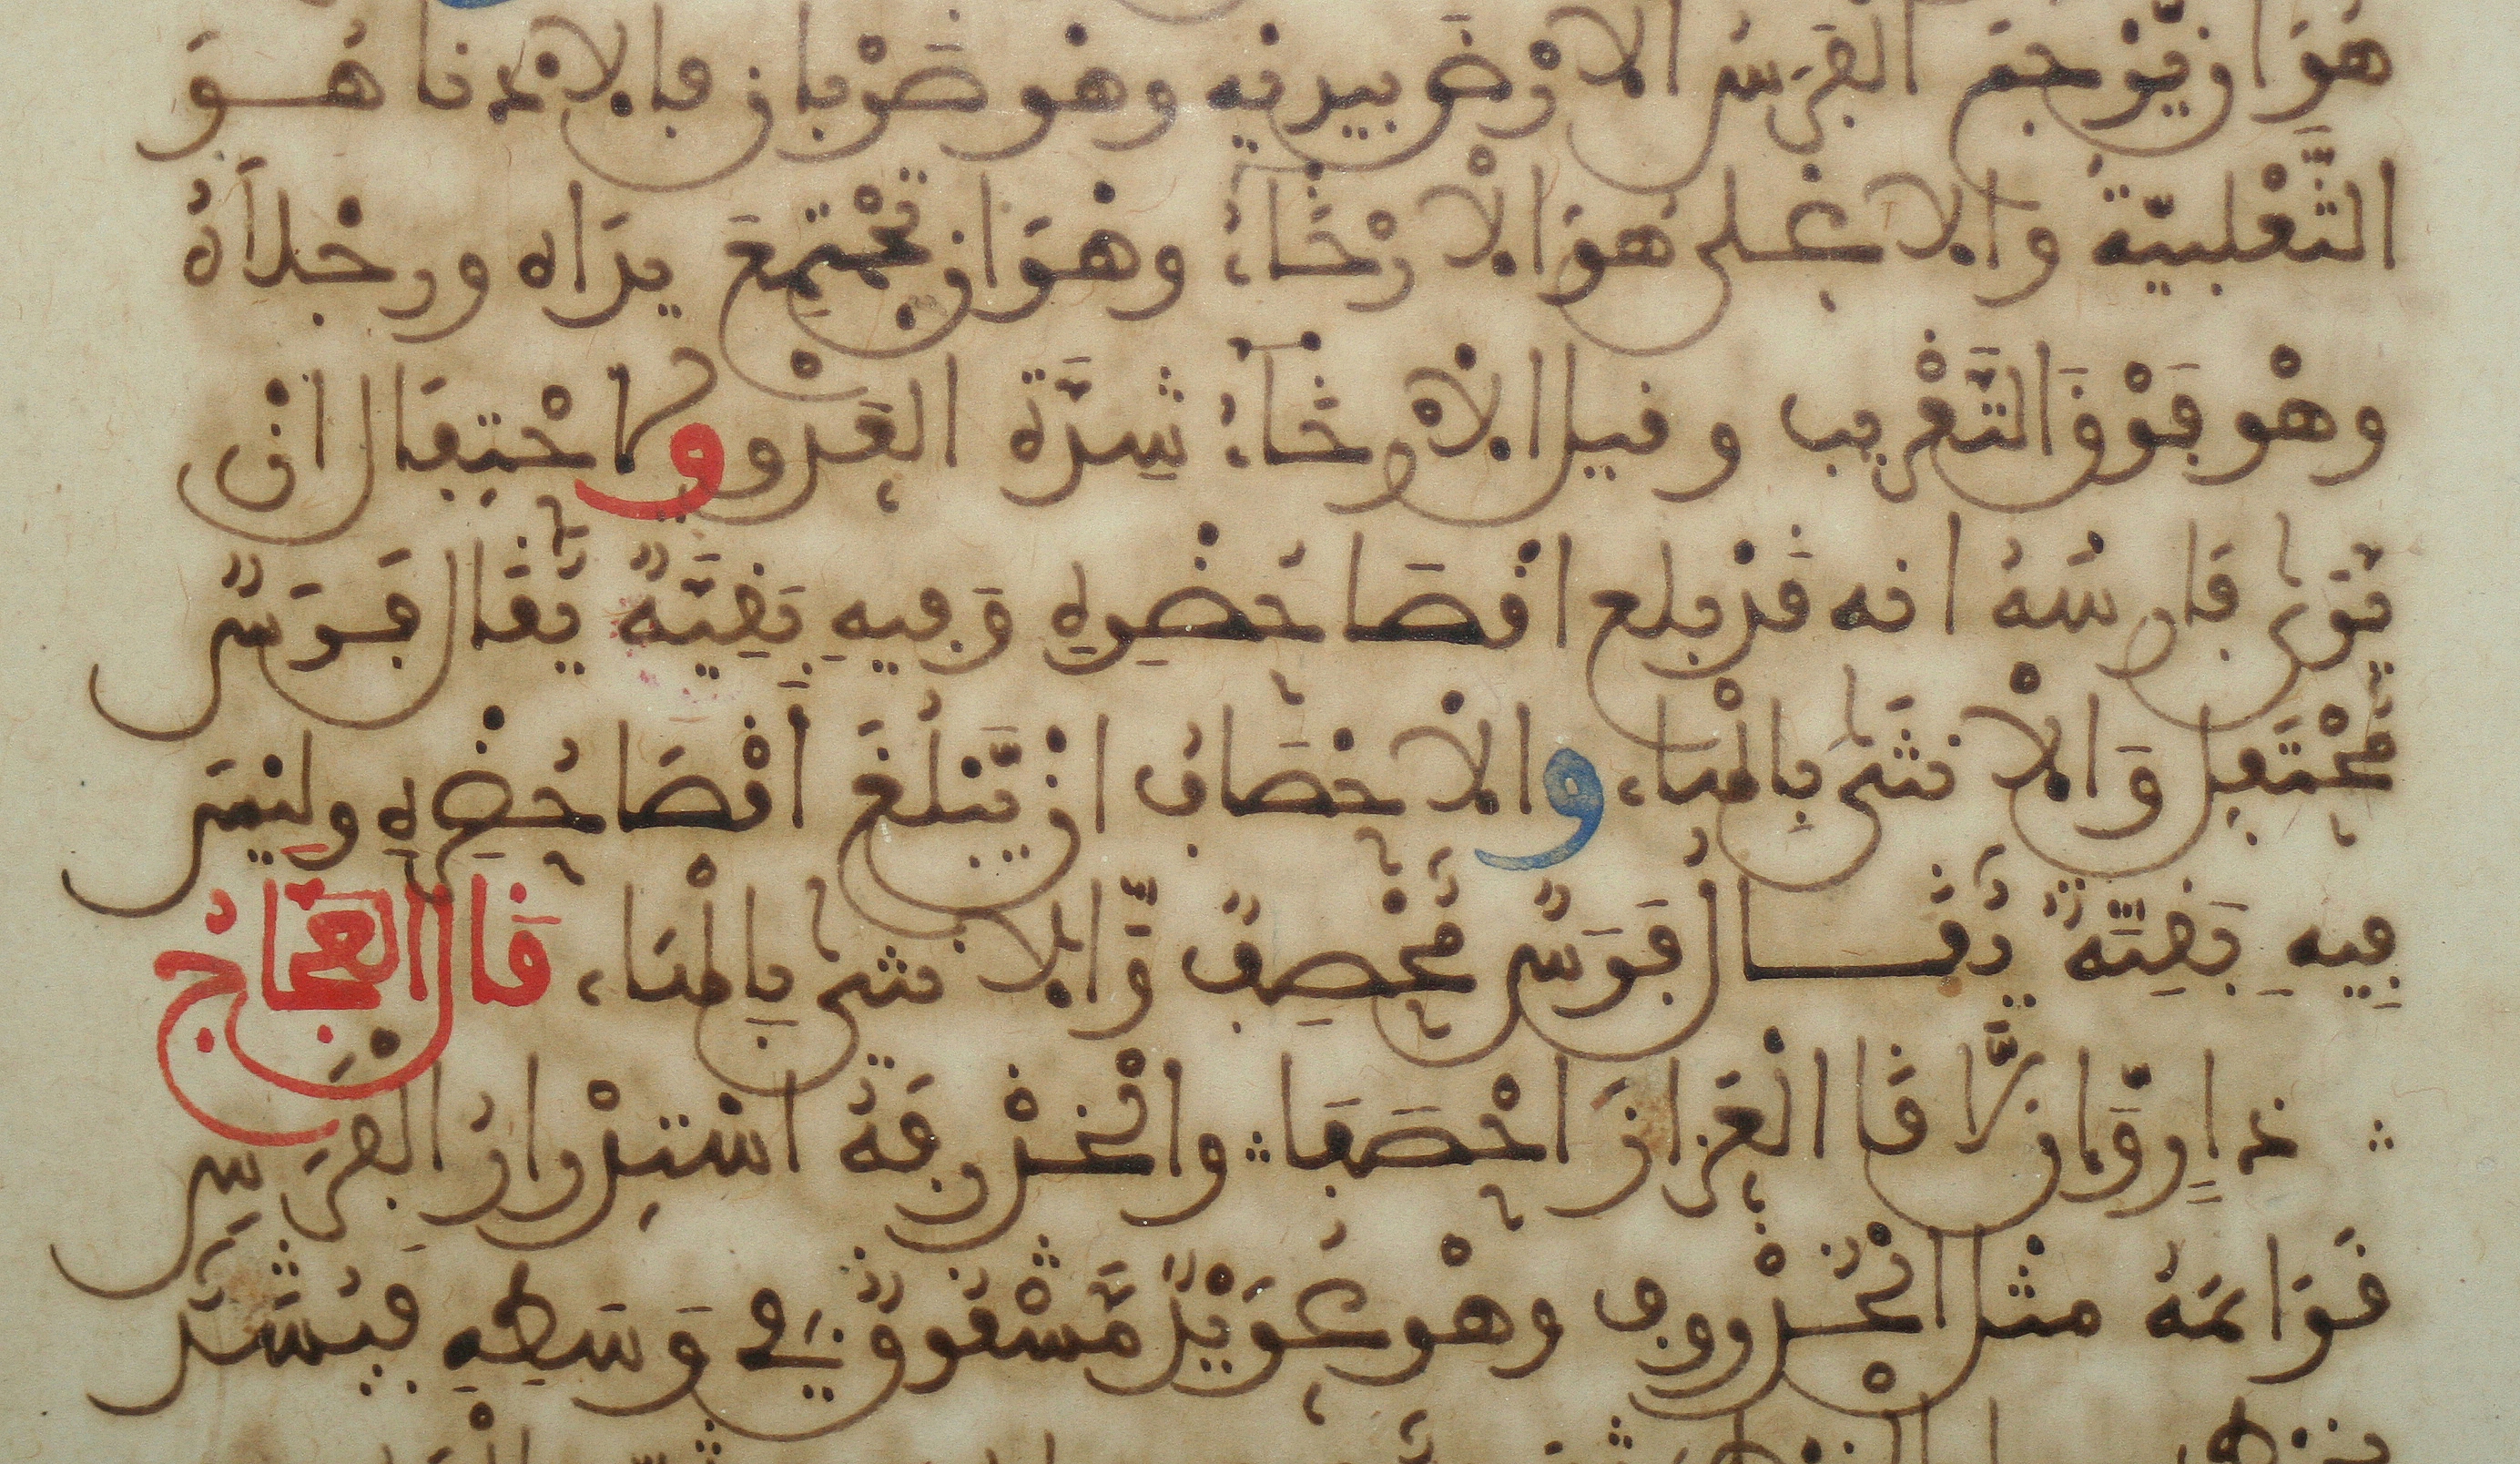 هُوَ ان يَّرْجُمَ الْفَرَسُ الارْضَ بيديْه وهُو ضَرْبان فالادْنا هُوَ
الثَّعْلبيّةُ والاعلى هُوَ الارْخَاءُ وهُوَ ان تَجْتمِعَ يدَاه ورجْلاَهُ
وهْو فَوْقَ التَّقْريب وقيل الارْخَاءُ شِدَّة العَدْو والاحْتِفَال ان
يَرَى فَارِسُهُ انه قدْ بلع اقْصَا حُضْرِهِ وَفِيهِ بَقِيَّةٌ يُقَال فَرَسٌ
مُحْتَفِل وَالانثَى بِالْهَاء، والاحْصَافُ ان يَّبْلُغَ أقْصَا حُضْرِهِ ولَيْسَ
فِيهِ بَقِيَّةٌ يُقَال فَرَسٌ مُحْصِفٌ وَّالانثى بِالْهَاء، قَال العَجَّاجُ
ذارٍ وَّان لَّاقَا الْعَزازَ احْصَفَا والْخذْرفَةُ اسْتِدْرارُ الفَرَسِ
قَوَائمَهُ مثل الْخُذْروف وهْو عُوَيْدٌ مَّشْقُوقٌ في وَسَطِهِ فيُشَدُّ